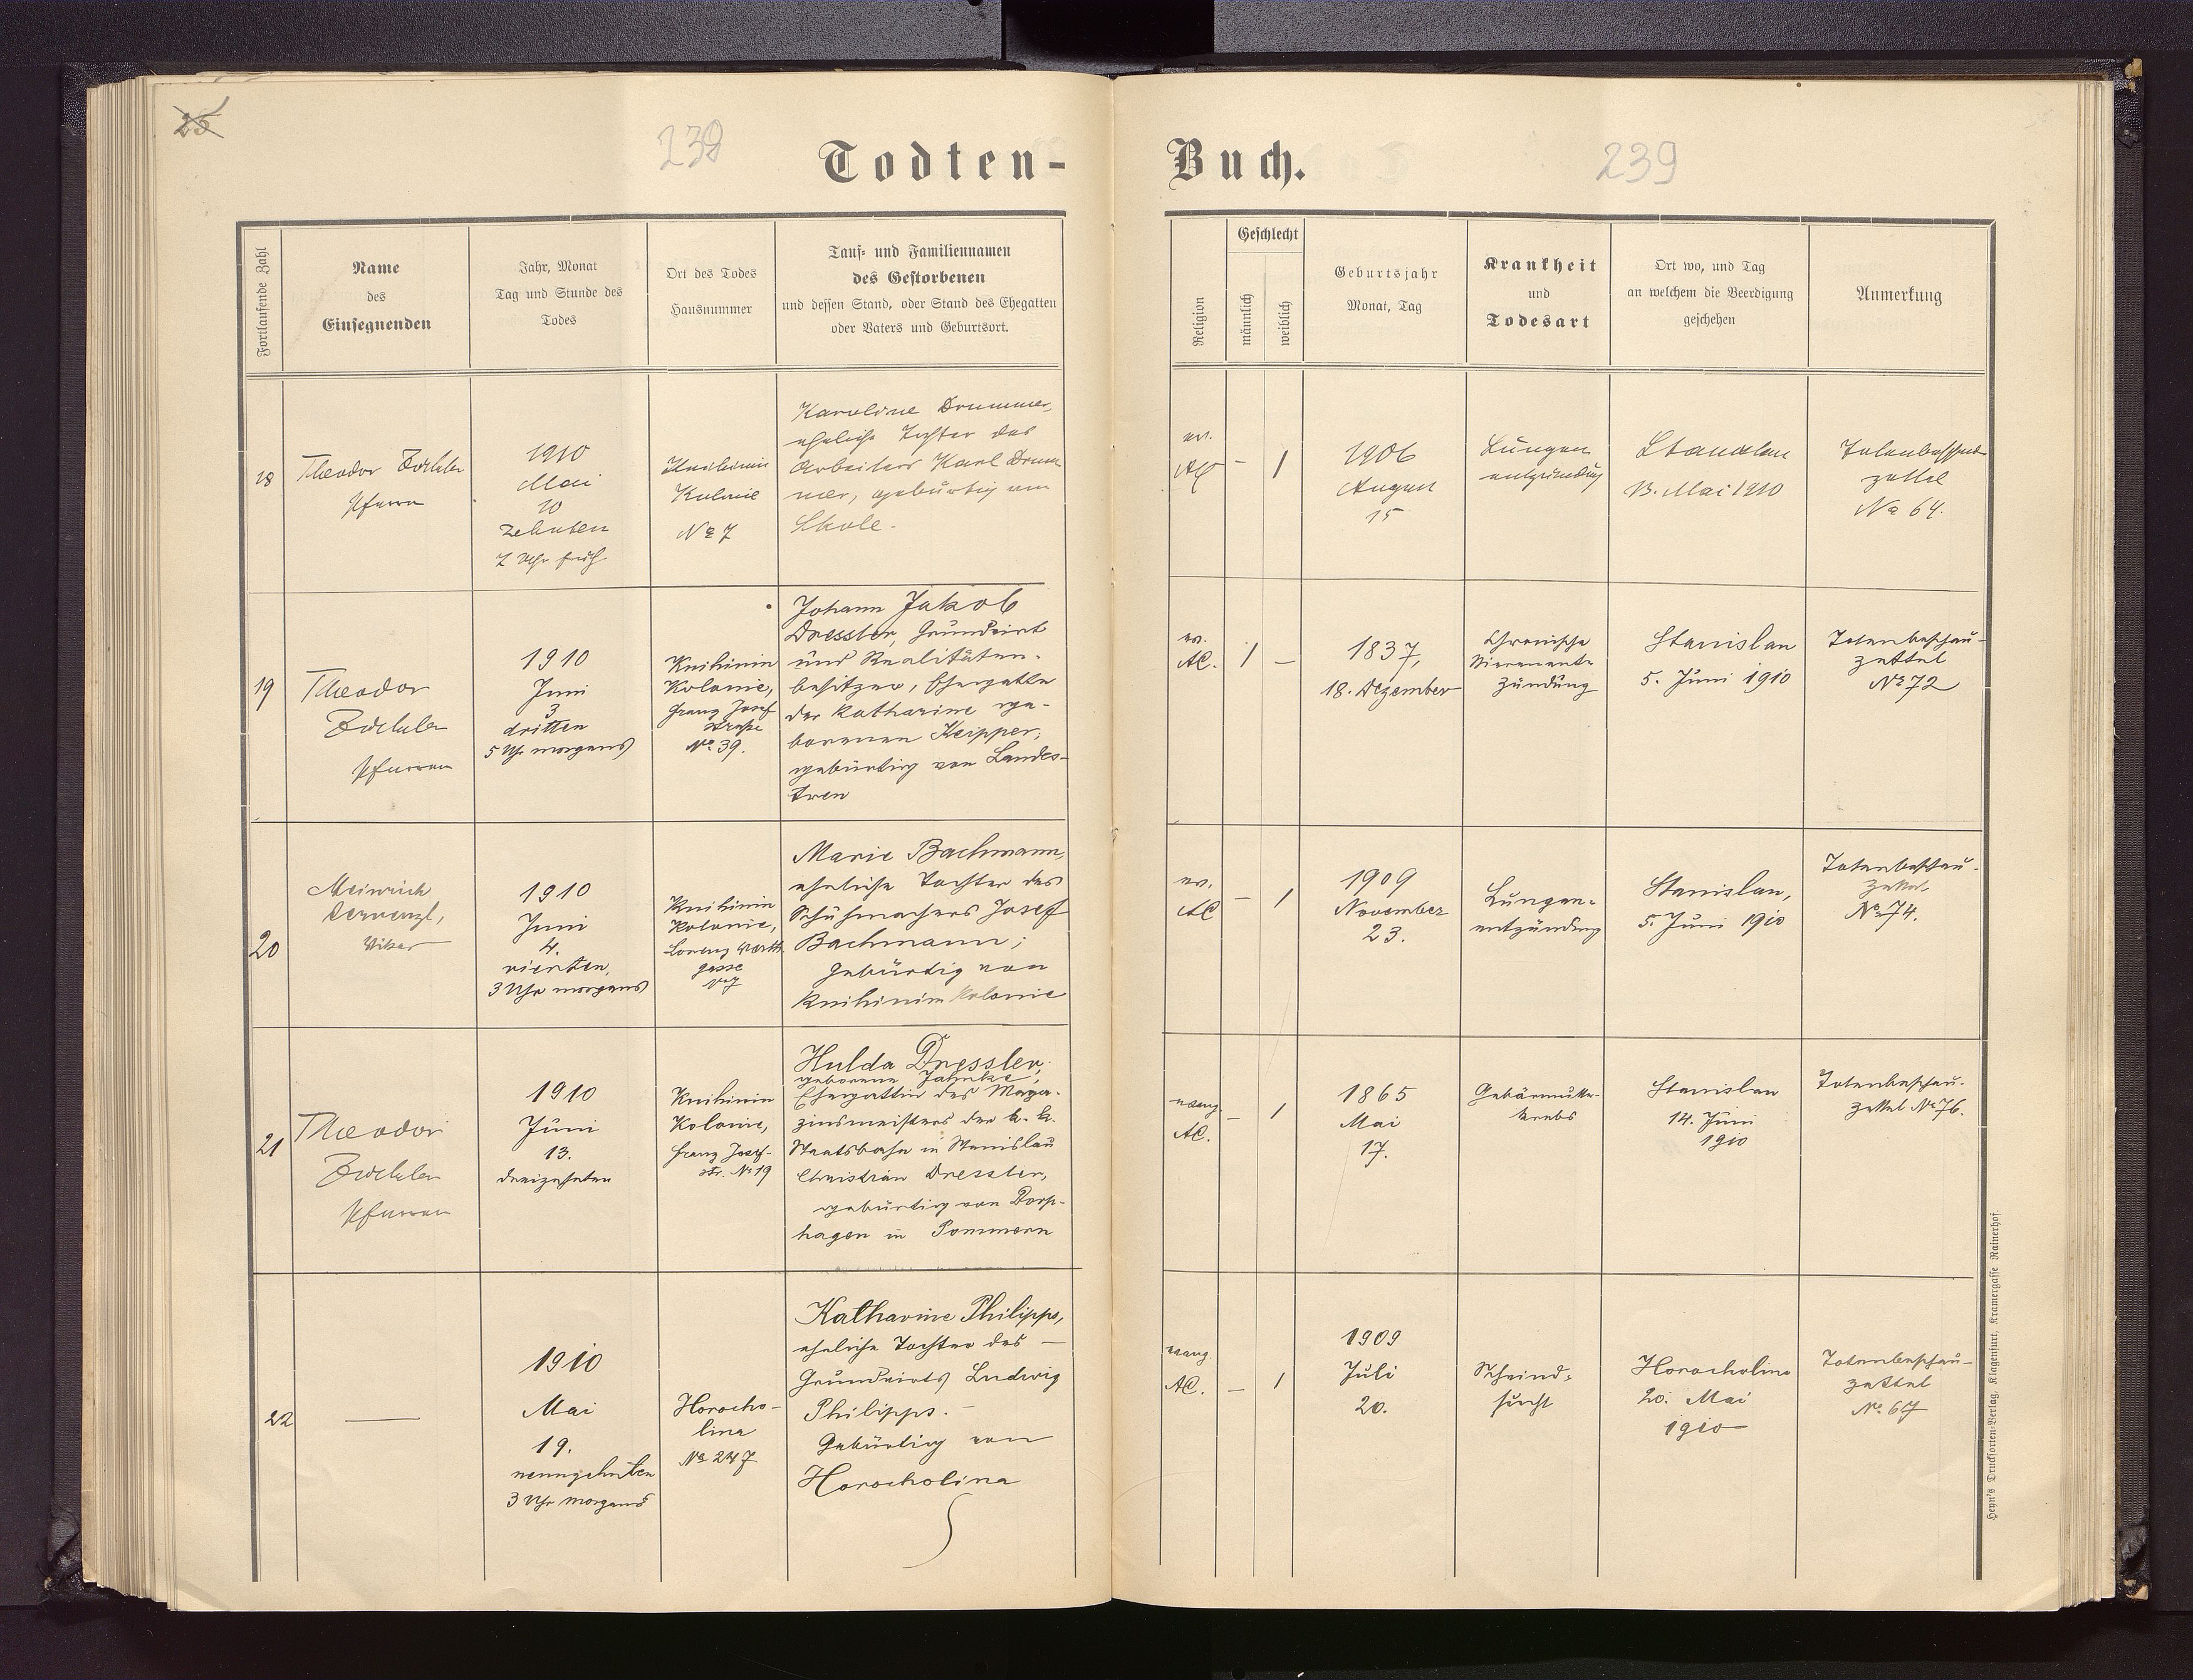 25
238
Todten-
Fortlaufende Zahl
Name
des
Einsegnenden
Jahr, Monat
Tag und Stunde des
Todes
Ort des Todes
Hausnummer
Tauf- und Familiennamen
des Gestorbenen
und dessen Stand, oder Stand des Ehegatten
oder Vaters und Geburtsort.
18
Theodor Zöckler
Pfarrer
1910
Mai
10
zehnten
7 Uhr früh
Knihinin
Kolonie
No 7
Karoline Drummer,
eheliche Tochter des
Arbeiters Karl Drum
mer, gebürtig von
Skole.
19
Theodor
Zöckler
Pfarrer
1910
Juni
3
dritten
5 Uhr morgens
Knihinin
Kolonie,
Franz Josef
straße
No. 39.
Johann Jakob
Dressler, Grundwirt
und Realitäten-
besitzer, Ehegatte
der Katharine ge-
borenen Keipper,
gebürtig von Landes-
treu
20
Vikar
1910
Juni
4.
vierten,
3 Uhr morgens
Knihinin
Kolonie,
Lorenz
gasse
No 7
Marie Bachmann,
eheliche Tochter des
Schuhmachers Josef
Bachmann;
gebürtig von
Knihinin Kolonie
21
Theodor
Zöckler
Pfarrer
1910
Juni
13.
dreizehnten
Knihinin
Kolonie,
Franz Josef-
str. No 19
Hulda Dressler,
geborene Jahnke,
Ehegattin des Maga-
zinsmeisters der k. k.
Staatsbahn in Stanislau
Christian Dressler,
gebürtig von
hagen in Pommern
22
1910
Mai
19.
neunzehnten
3 Uhr morgens
Horocho-
lina
No 247
Katharine Philipps,
eheliche Tochter des
Grundwirts Ludwig
Philipps.
Gebürtig von
Horocholina
Buch.
239
Religion
Geschlecht
männlich
weiblich
Geburtsjahr
Monat, Tag
Krankheit
und
Todesart
Ort wo, und Tag
an welchem die Beerdigung
geschehen
Anmerkung
ev.
AC
– 1
1906
August
15
Lungen
entzündung
Stanislau
13. Mai 1910
Totenbeschau
zettel
No 64.
ev.
AC.
1 –
1837,
18. Dezember
Chronische
Nierenent-
zündung
Stanislau
5. Juni 1910
Totenbeschau-
zettel
No 72
ev.
AC
– 1
1909
November
23.
Lungen-
entzündung
Stanislau,
5. Juni 1910
Totenbeschau-
zettel
No 74.
evang.
AC.
– 1
1865
Mai
17.
Gebärmutter-
krebs
Stanislau
14. Juni
1910
Totenbeschau-
zettel No 76.
evang.
AC.
– 1
1909
Juli
20.
Schwind-
sucht
Horocholina
20. Mai
1910
Totenbeschau-
zettel
No 67
Heyn's Drucksorten-Verlag, Klagenfurt, Kramergasse Rainerhof.